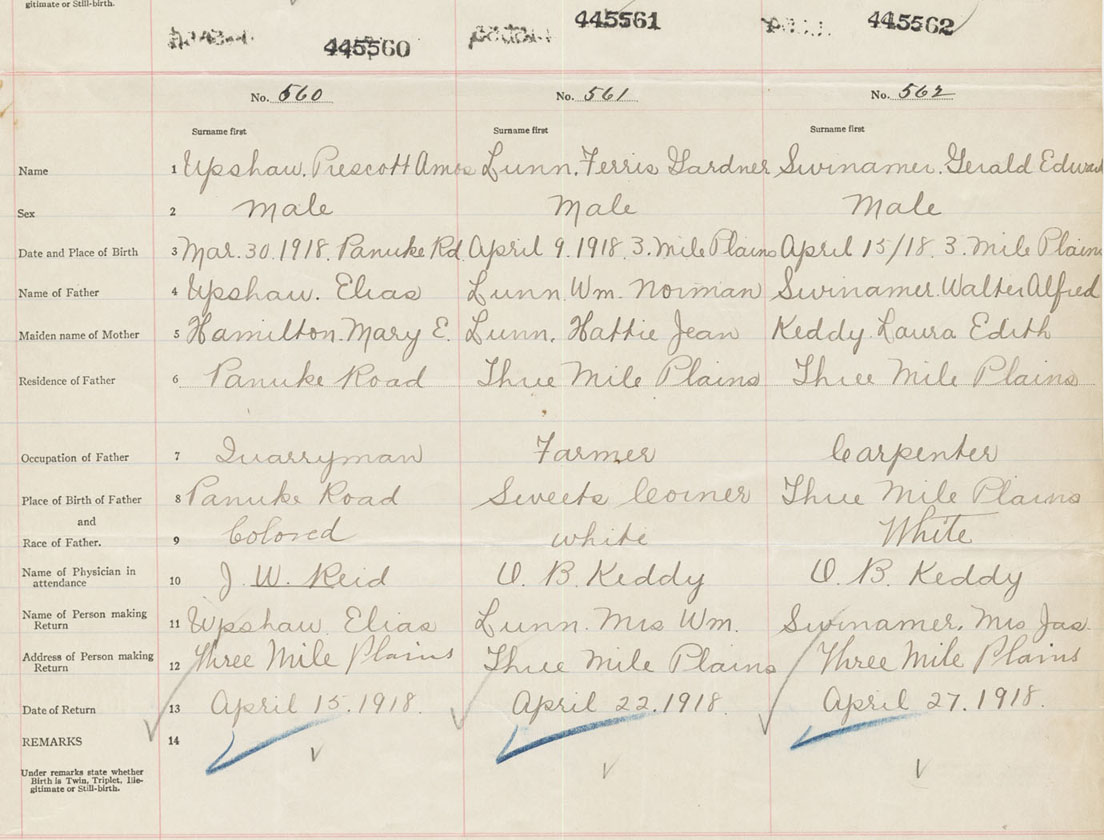 gitimate or Still-birth.
445560 445561 445562
No. 560 No. 561 No. 562
Surname first Surname first Surname first
Name 1 Upshaw. Prescott Amos Lunn. Ferris Gardner Swinamer. Gerald Edward
Sex 2 Male Male Male
Date and Place of Birth 3 Mar. 30. 1918. Panuke Rd. April 9. 1918. 3. Mile Plains April 15/18. 3. Mile Plains
Name of Father 4 Upshaw. Elias Lunn. Wm. Norman Swinamer. Walter Alfred
Maiden name of Mother 5 Hamilton. Mary E. Lunn. Hattie Jean Keddy. Laura Edith
Residence of Father 6 Panuke Road Three Mile Plains Three Mile Plains
Occupation of Father 7 Quarryman Farmer Carpenter
Place of Birth of Father 8 Panuke Road Sweets Corner Three Mile Plains
and
Race of Father. 9 Colored white White
Name of Physician in attendance 10 J. W. Reid O. B. Keddy O. B. Keddy
Name of Person making Return 11 Upshaw. Elias Lunn. Mrs Wm. Swinamer. Mrs Jas.
Address of Person making Return 12 Three Mile Plains Three Mile Plains Three Mile Plains
Date of Return 13 April 15. 1918. April 22. 1918. April 27. 1918.
REMARKS 14
Under remarks state whether
Birth is Twin, Triplet, Ille-
gitimate or Still-birth.